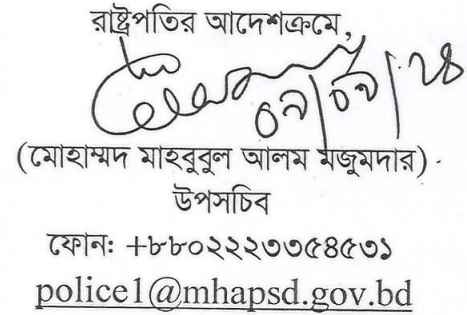 রাষ্ট্রপতির আদেশক্রমে,
০৯/০৯/২৪
(মোহাম্মদ মাহবুবুল আলম মজুমদার)
উপসচিব
ফোনঃ +৮৮০২২২৩৩৫৪৫৩১
police1@mhapsd.gov.bd